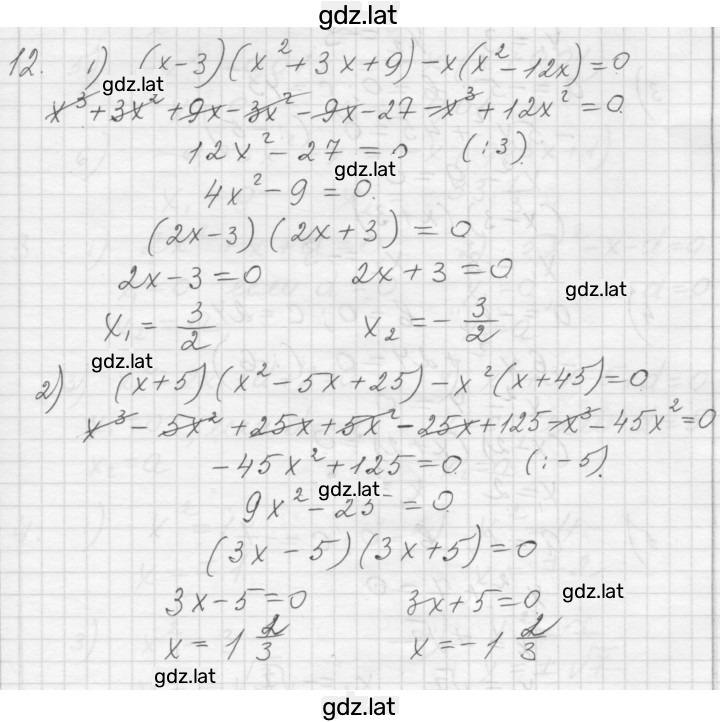 gdz.lat
12. 1) (x-3)(x²+3x+9)-x(x²-12x)=0
gdz.lat
x³+3x²+9x-3x²-9x-27-x³+12x²=0.
12x²-27=0 (:3).
gdz.lat
4x²-9=0.
(2x-3)(2x+3)=0
2x-3=0 2x+3=0
gdz.lat
x₁=3/2 x₂=-3/2
gdz.lat
2) (x+5)(x²-5x+25)-x²(x+45)=0
x³-5x²+25x+5x²-25x+125-x³-45x²=0
-45x²+125=0 (:-5).
gdz.lat
9x²-25=0
(3x-5)(3x+5)=0
3x-5=0 3x+5=0
gdz.lat
x=1 2/3 x=-1 2/3
gdz.lat
gdz.lat